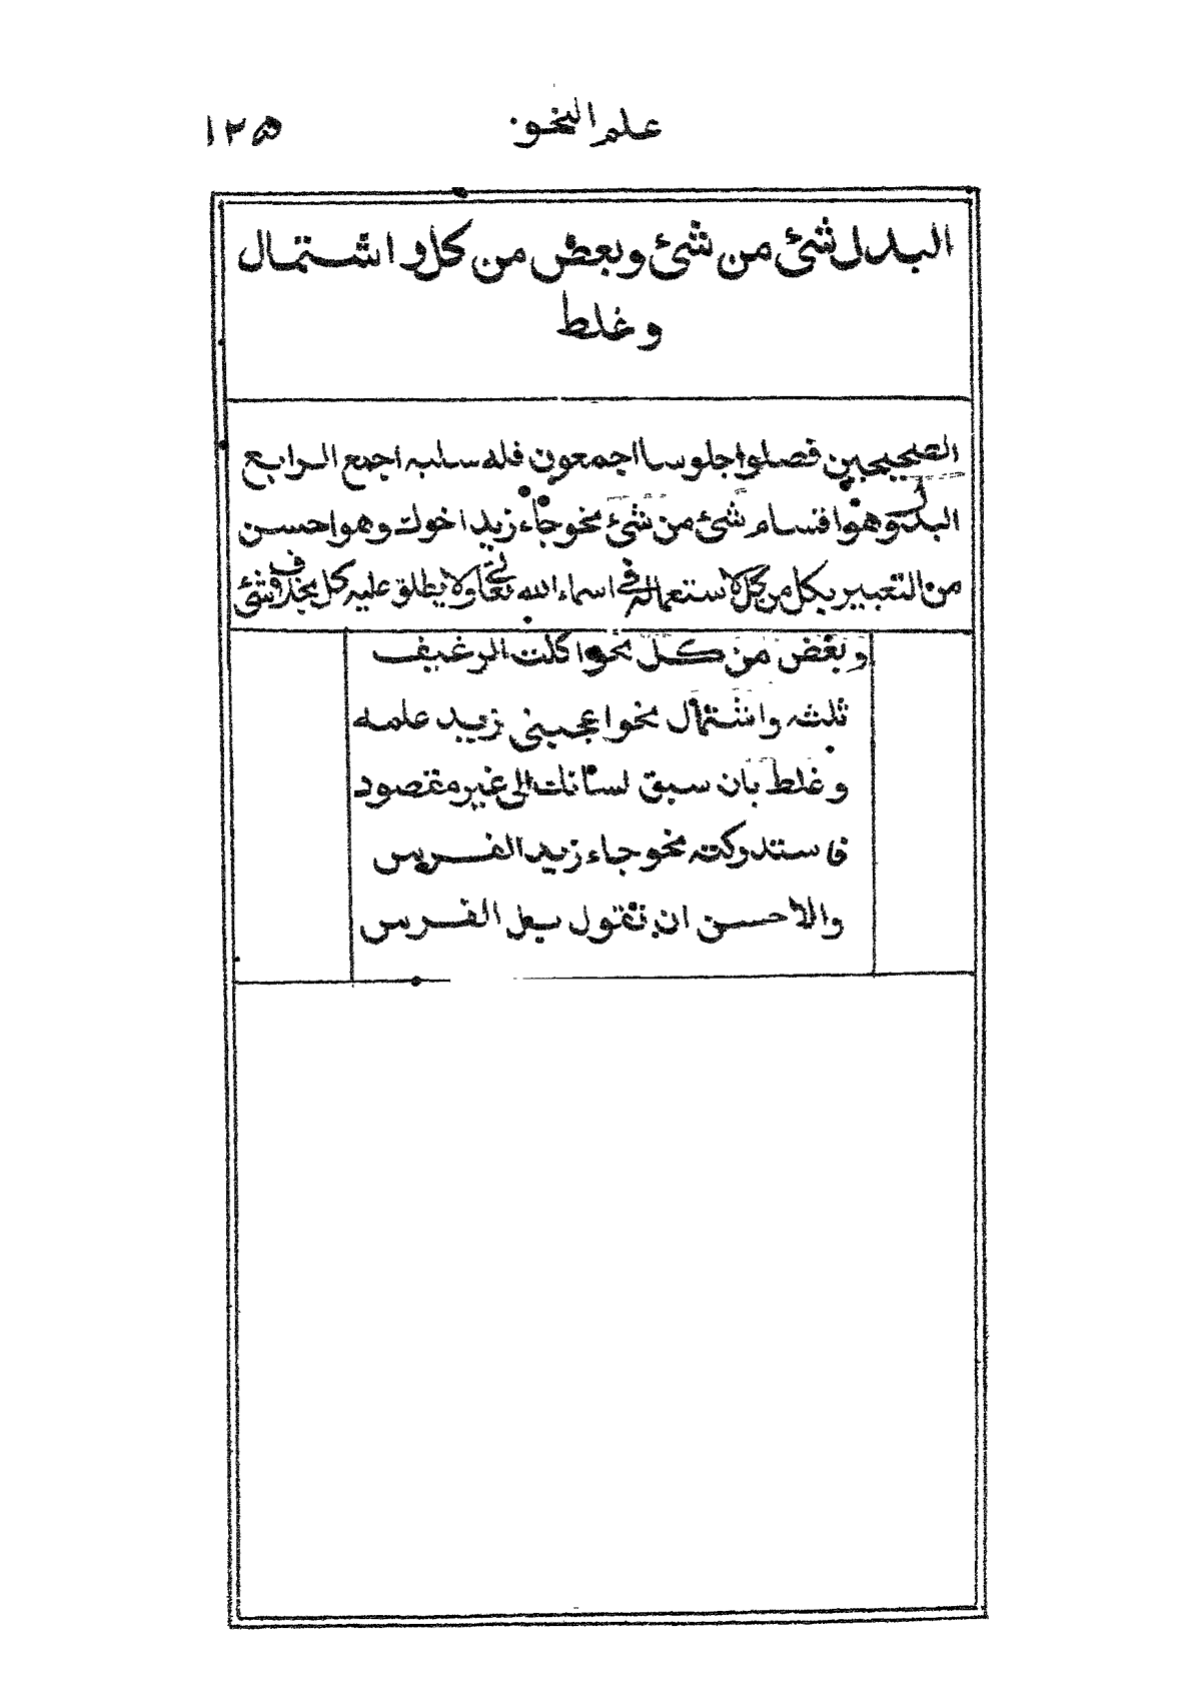 علم النحو
١٢٥
البدل شئ من شئ وبعض من كل واشتمال
وغلط
الصحيحين فصلوا جلوسا اجمعون فله سلبه اجمع الرابع
البدل وهو اقسام شئ من شئ نحو جاء زيد اخوك وهو احسن
من التعبير بكل من كل لاستعماله في اسماء الله تعالى ولا يطلق عليه كل بخلاف شئ
وبعض من كل نحو اكلت الرغيف
ثلثه واشتمال نحو اعجبنى زيد علمه
وغلط بان سبق لسانك الى غير مقصود
فاستدركته نحو جاء زيد الفرس
والاحسن ان تقول بل الفرس